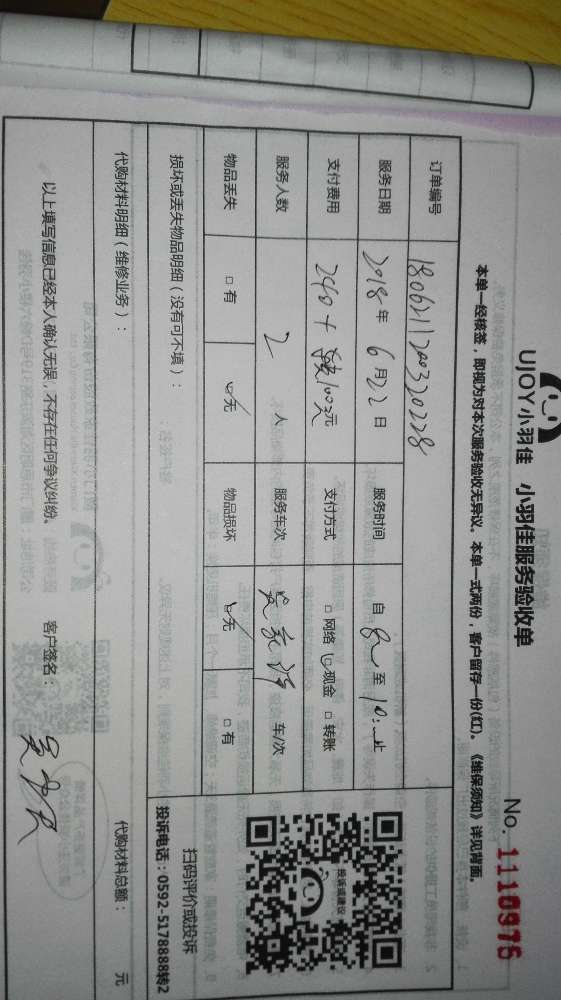 UJOY小羽佳 小羽佳服务验收单
No. 1110976
本单一经核签，即视为对本次服务验收无异议。本单一式两份，客户留存一份(红)。《维保须知》详见背面。
订单编号 18062111200320228
服务日期 2018年6月22日 服务时间 自 至 10:
支付费用 240+ 100元 支付方式 □网络 ☑现金 □转账
服务人数 2人 服务车次 车/次
物品丢失 □有 ☑无 物品损坏 ☑无 □有
投诉或建议
扫码评价或投诉
投诉电话：0592-5178888转2
损坏或丢失物品明细（没有可不填）：
代购材料明细（维修业务）： 代购材料总额： 元
以上填写信息已经本人确认无误，不存在任何争议纠纷。 客户签名：